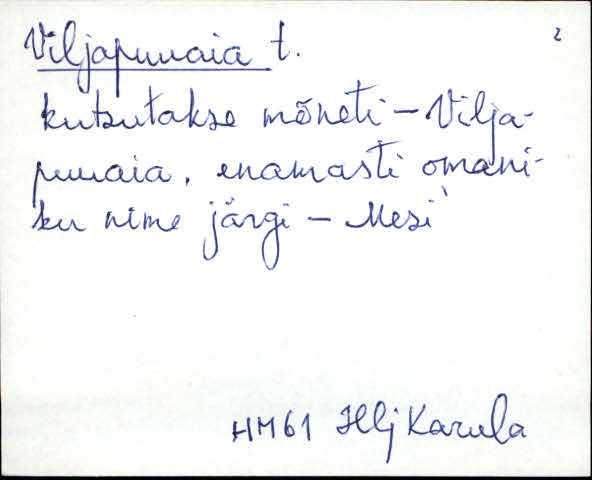 Viljapuuaia t.
2
kutsutakse mõneti – Vilja-
puuaia, enamasti omani-
ku nime järgi – Mesi
HM61 Hlj Karula